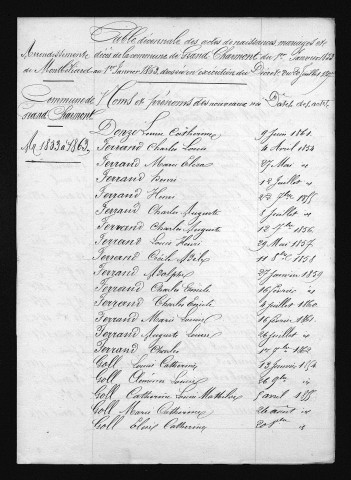 Table décennale des actes de naissances, mariages et
décès de la commune de Grand Charmont du 1er Janvier 1853
Arrondissement
de Montbéliard au 1er Janvier 1863, dressée en exécution du Décret du 20 juillet
Commune de Noms et prénoms des nouveaux nés Dates des actes
Grand Charmont
Né 1853 à 1863
Louise Catherine 9 Juin 1861
Ferrand Charles Louis 4 Avril 1854
Ferrand Marie Elisa 27 Mai id
Ferrand Henri 12 Juillet id
Ferrand Henri 23
Ferrand Charles Auguste 8 Juillet id
Ferrand Charles Auguste 12 7bre 1856
Ferrand Louis Henri 29 Mai 1857
Ferrand Cécile Adèle 11 8bre 1858
Ferrand Adolphe 27 Janvier 1859
Ferrand Charles Emile 16 février id
Ferrand Charles 4 juillet 1860
Ferrand Marie Louise 16 février 1861
Ferrand Auguste Louis 26 juillet id
Ferrand Charles 1862
Goll Louise Catherine 13 Janvier 1854
Goll Clémence Louise 26 9bre id
Goll Catherine Louise Mathilde 8 avril
Goll Marie Catherine 24 août id
Goll Eloïse Catherine 20